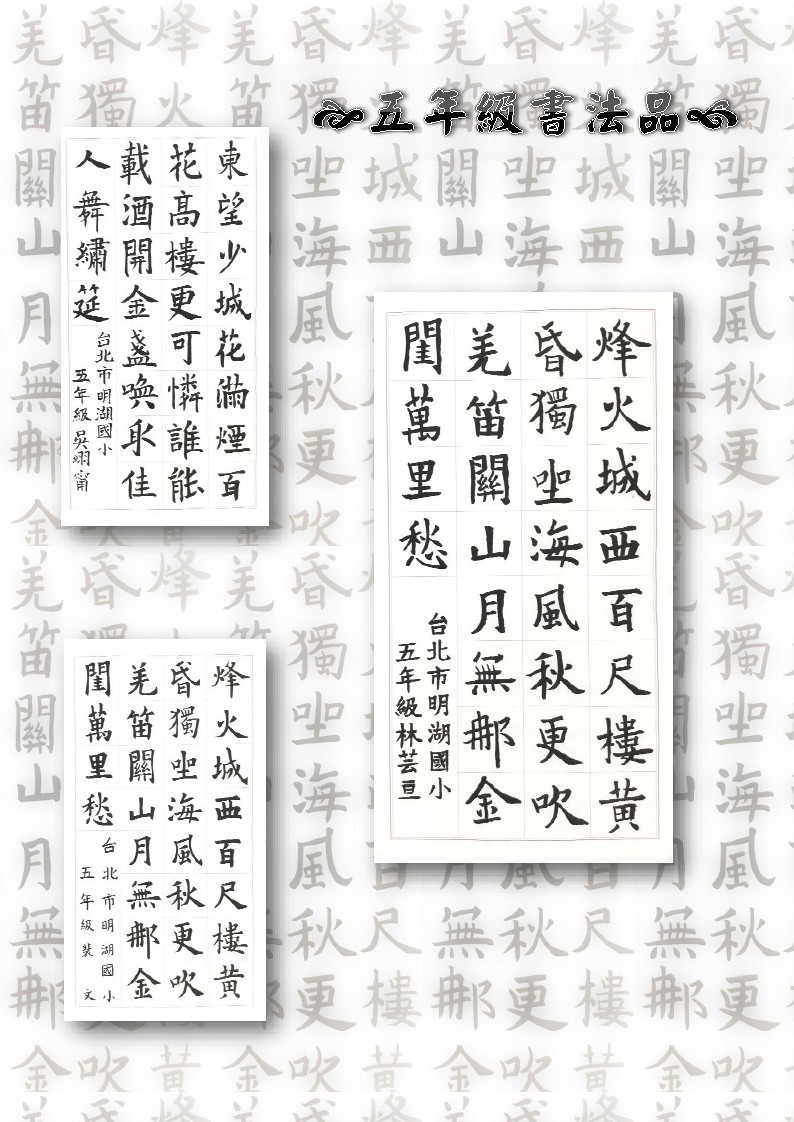 五年級書法品
東望少城花滿煙百
花高樓更可憐誰能
載酒開金盞喚取佳
人舞繡筵
台北市明湖國小
五年級吳翊甯
烽火城西百尺樓黃
昏獨坐海風秋更吹
羌笛關山月無那金
閨萬里愁
台北市明湖國小
五年級林芸亘
烽火城西百尺樓黃
昏獨坐海風秋更吹
羌笛關山月無那金
閨萬里愁
台北市明湖國小
五年級裴文